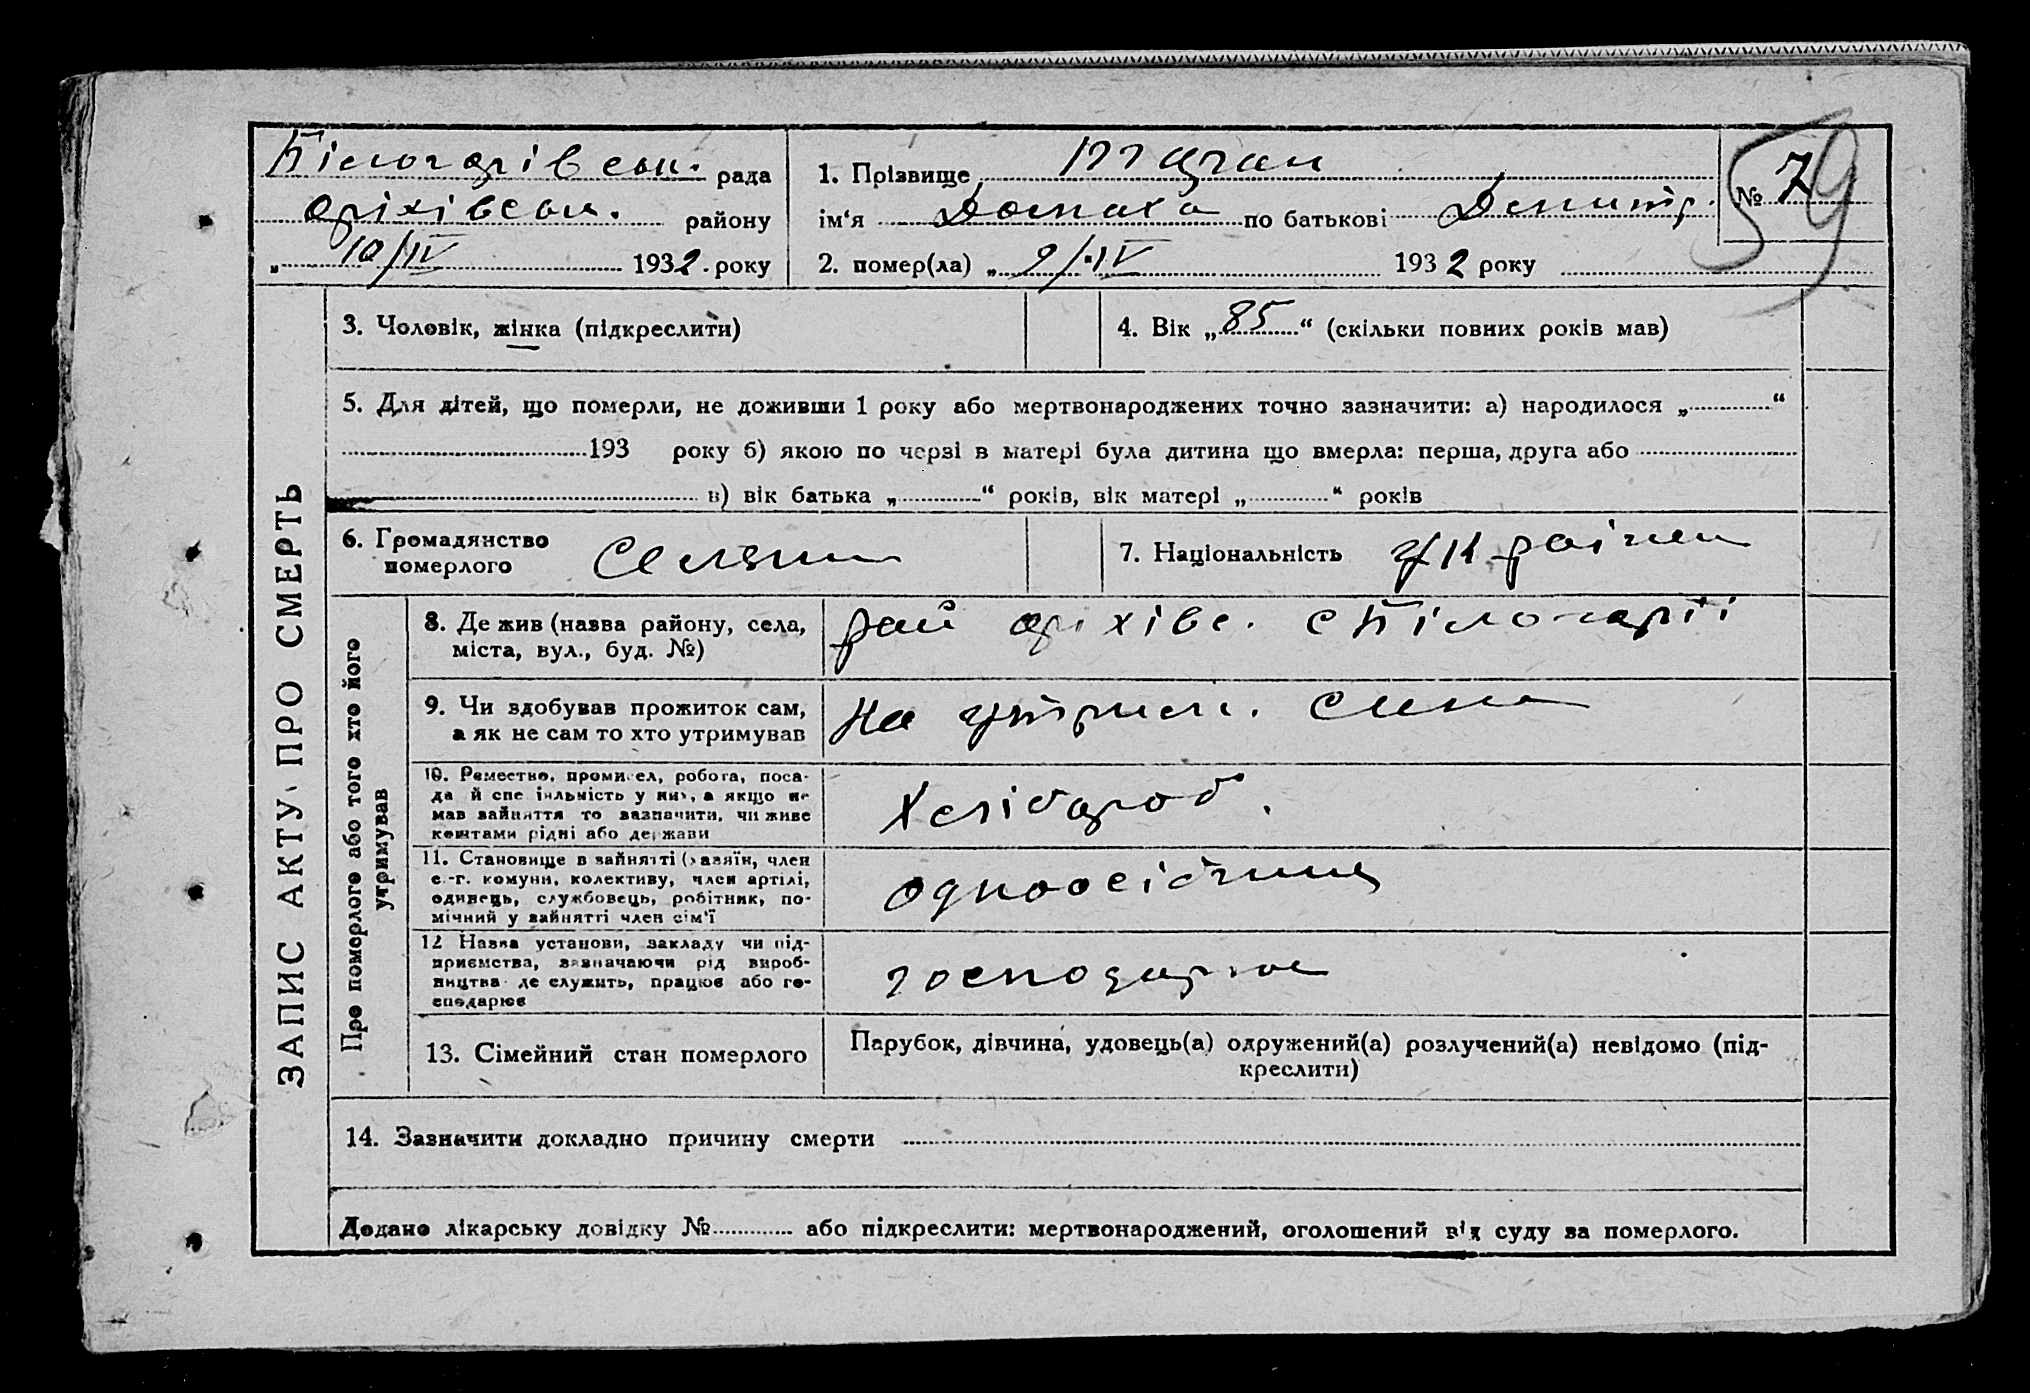 Білогорівськ. рада
Оріхівськ. району
„ 10/IV 1932. року
1. Прізвище
ім‘я Домаха по батькові Дмитр.
2. помер(ла) „ 9/IV 1932 року
№ 7
59
ЗАПИС АКТУ ПРО СМЕРТЬ
3. Чоловік, жінка (підкреслити)
4. Вік „ 85 “ (скільки повних років мав)
5. Для дітей, що померли, не доживши 1 року або мертвонароджених точно зазначити: а) народилося „ “
193 року б) якою по черзі в матері була дитина що вмерла: перша, друга або
в) вік батька „ “ років, вік матері „ “ років
6. Громадянство
померлого
Селянин
7. Національність українец
Про померлого або того хто його
утримував
8. Де жив (назва району, села,
міста, вул., буд. №)
рай оріхівс. с Білогорії
9. Чи здобував прожиток сам,
а як не сам то хто утримував
На утриман. сина
10. Ремество, промисел, робота, поса-
да й спеціяльність у них, а якщо не
мав зайняття то зазначити, чи живе
коштами рідні або держави
Хлібороб.
11. Становище в зайнятті (хазяїн, член
с.-г. комуни, колективу, член артілі,
одинець, службовець, робітник, по-
мічний у зайнятті член сім'ї
одноосібник
12 Назва установи, закладу чи під-
приємства, зазначаючи рід вироб-
ництва де служить, працює або го-
сподарює
господарює
13. Сімейний стан померлого
Парубок, дівчина, удовець(а) одружений(а) розлучений(а) невідомо (під-
креслити)
14. Зазначити докладно причину смерти
Додано лікарську довідку № або підкреслити: мертвонароджений, оголошений від суду за померлого.